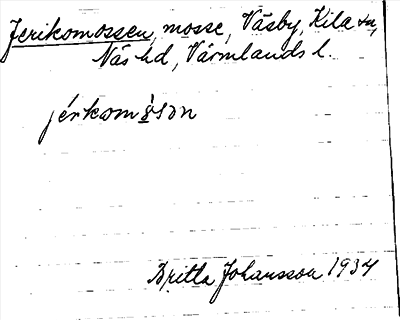 Jerikomossen, mosse, Väsby, Kila sn,
Näs hd, Värmlands l.
Britta Johansson 1934